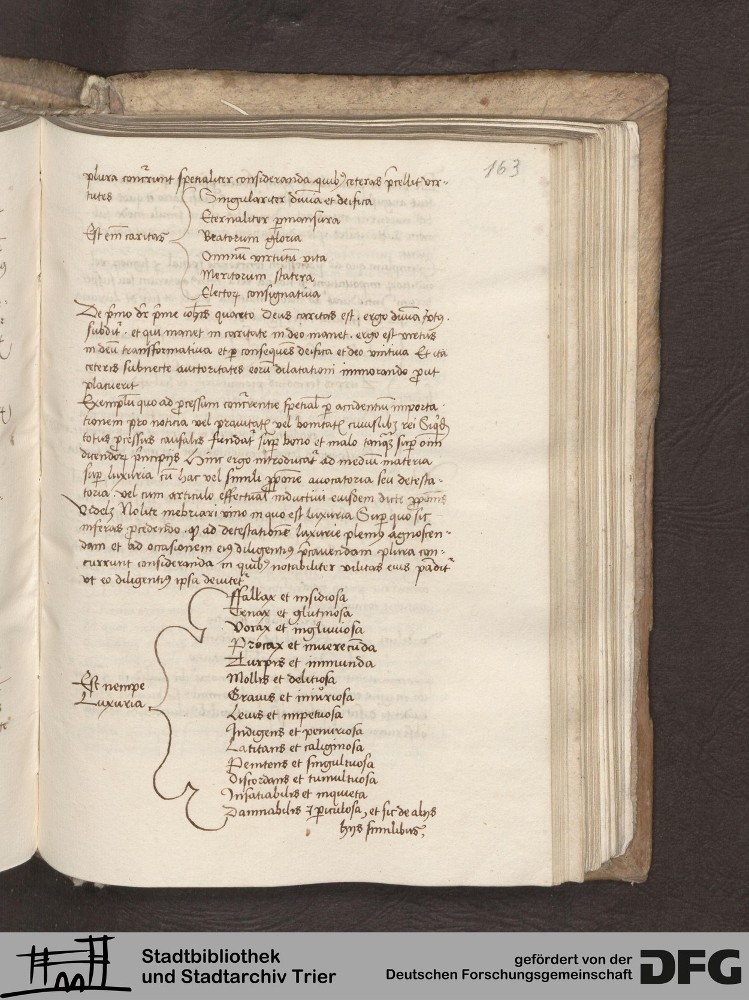 163
plura concurrunt specialiter consideranda quibus ceteras precellit vir-
tutes
Singulariter diuina et deifica
Eternaliter permansura
Est enim caritas Beatorum gloria
Omnium virtutum vita
Meritorum statera
Electorum consignatiua
De primo dicitur prime iohannis quarto Deus caritas est. ergo diuina virtus.
subditur. et qui manet in caritate in deo manet. ergo est virtus
in deum transformatiua et per consequens deifica et deo vnitiua Et ita
ceteris subnecte auctoritates eorum dilatationi immorando prout
placuerit
Exemplum quo ad processum concurrentie specialis per accidentium importa-
tionem pro noticia vel prauitatis vel bonitatis cuiuslibet rei
totus processus causalis fundatur super bono et malo tanquam super omnium
dicendorum principiis Hinc ergo introducatur ad medium materia
super luxuria cum hac vel simili propone auocatoria seu detesta-
toria. vel cum articulo effectuali inductiuo eiusdem dicte
Videlicet Nolite inebriari vino in quo est luxuria Super quo sic
inferas procedendo. Quod ad detestationem luxurie plenius agnoscen-
dam et ad occasionem eius diligentius precauendam plura con-
currunt consideranda in quibus notabiliter vilitas eius panditur
vt eo diligentius ipsa deuitetur
Fallax et insidiosa
Tenax et glutinosa
Vorax et ingluuiosa
Procax et inuerecunda
Turpis et immunda
Est nempe Mollis et delitiosa
Luxuria Grauis et iniuriosa
Leuis et impetuosa
Indigens et penuriosa
Latitans et caliginosa
Penitens et singultuosa
Discordans et tumultuosa
Insatiabilis et inquieta
Damnabilis et periculosa, et sic de aliis
hiis similibus,
Stadtbibliothek
und Stadtarchiv Trier
gefördert von der
Deutschen Forschungsgemeinschaft
DFG